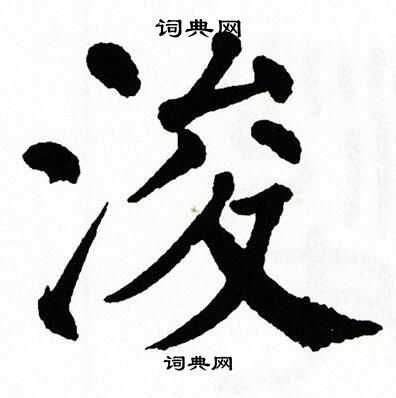 词典网
浚
词典网